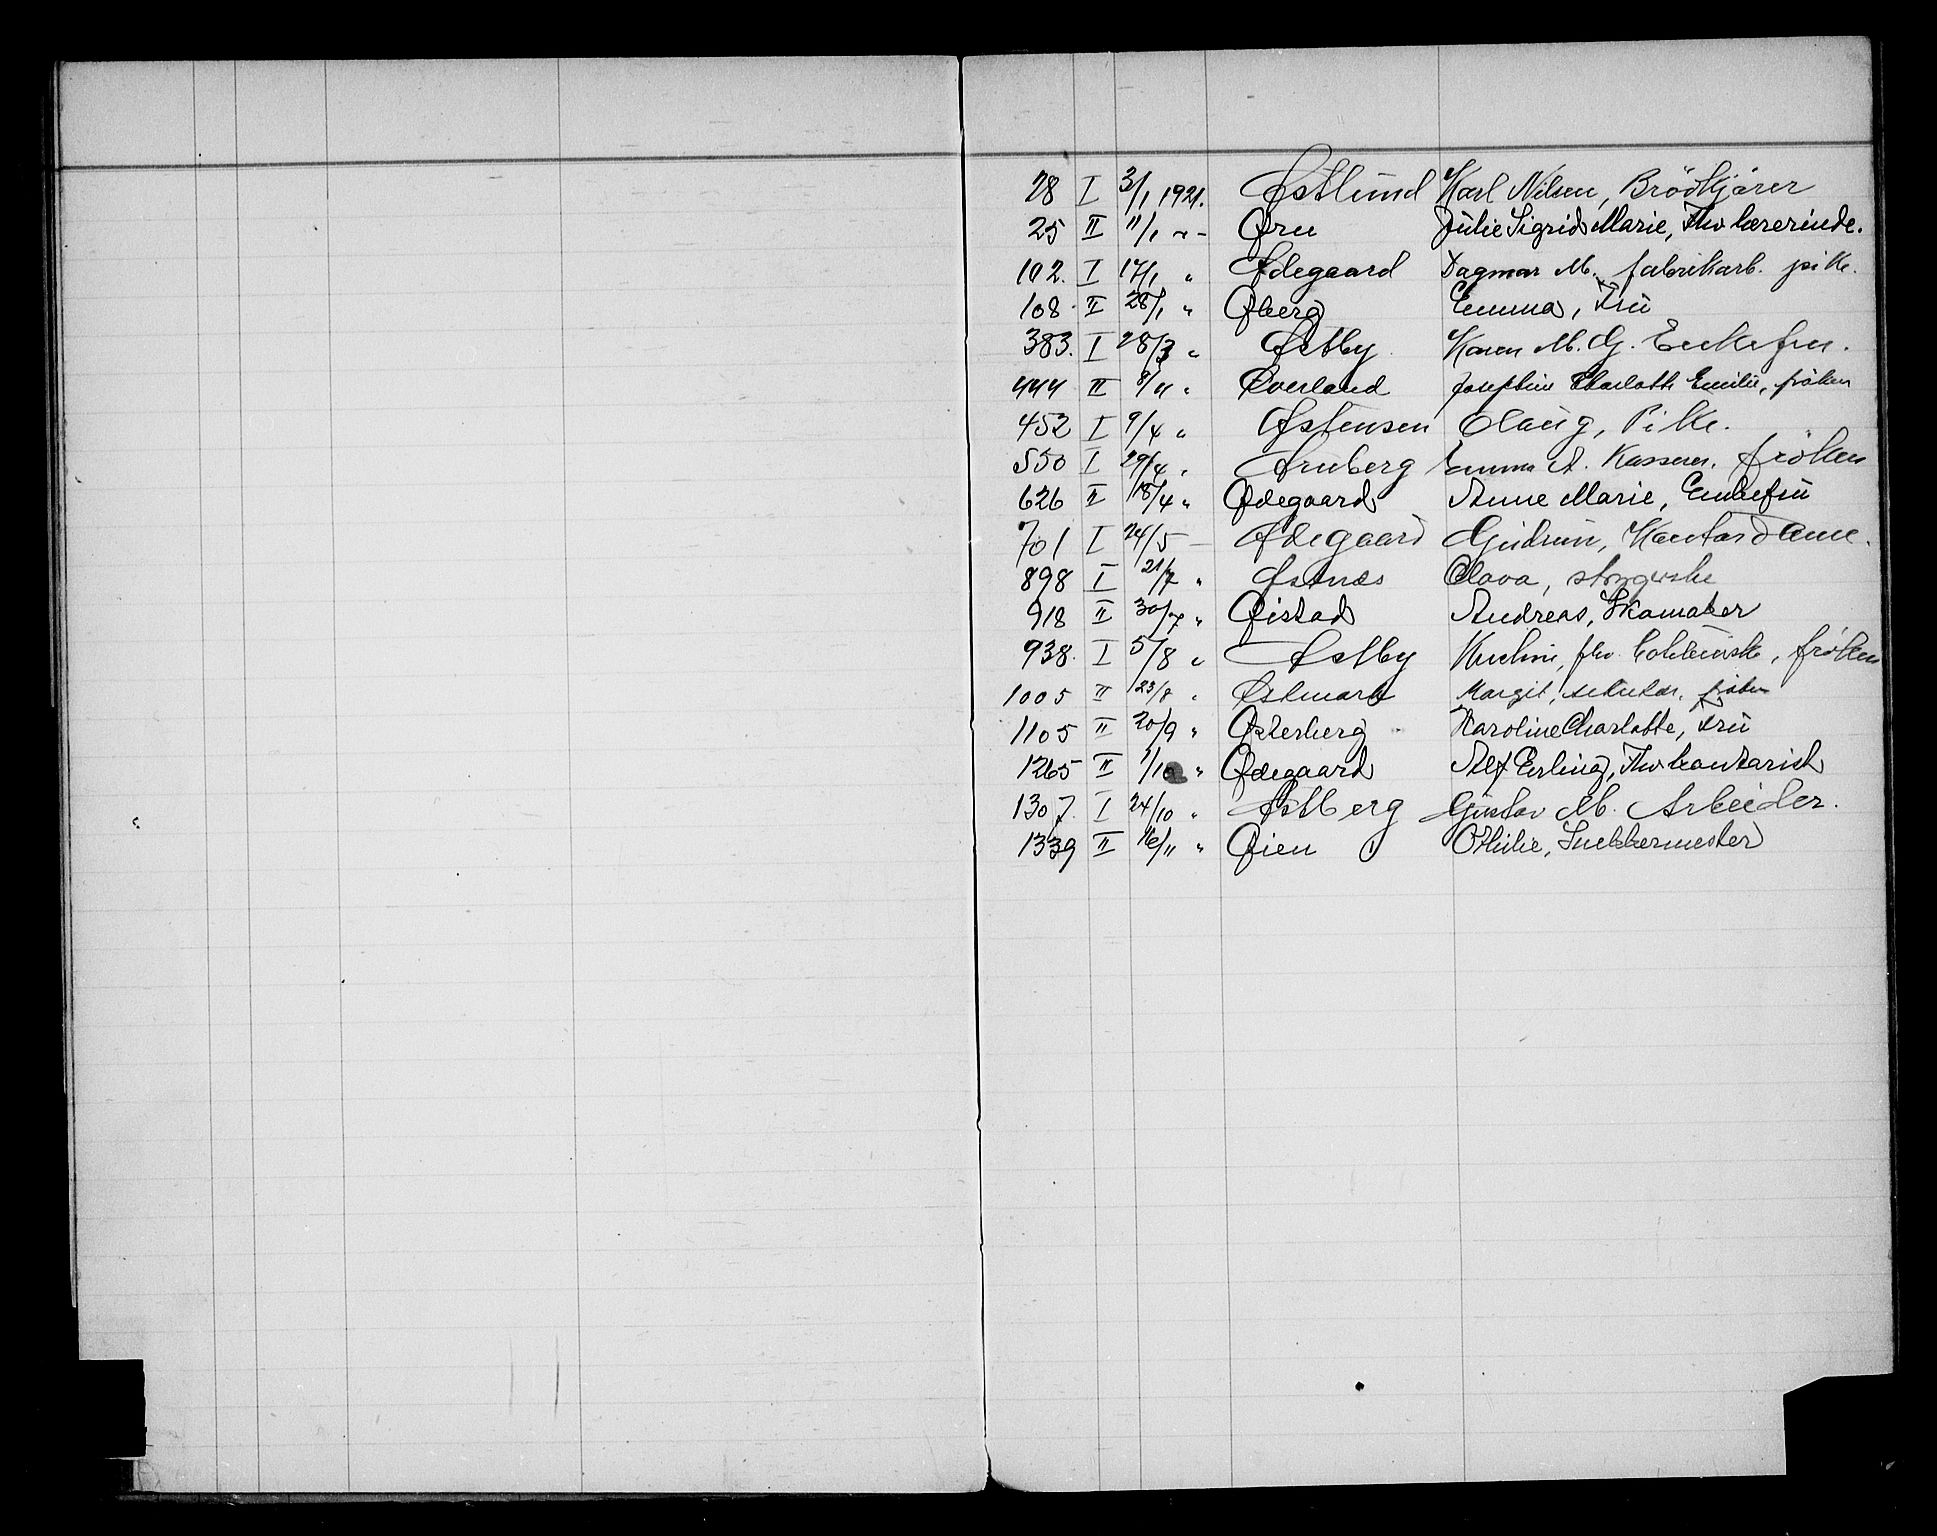 28 I 3/1 1921. Østlund Karl Nilsen, Brödkjörer
25 II 11/1 -"- Ørn Julie Sigrid Marie, Fhv lærerinde.
102. I 17/1 " Ødegaard Dagmar M. fabrikarb. pike.
108 II 28/1 " Øberg Emma, Frü
383. I 28/3 " Østby Karen M. G. Enkefru.
444 II 9/4 " Øverland Josephine Charlotte Emilie, frøken
452 I 9/4 " Østensen Olaug, Pike.
550 I 29/4 " Ørnberg Emma A. Kasserer. frøken
626 II 18/4 " Ødegaard Anne Marie, Enkefrü
701 I 24/5 - Ødegaard Gudrun, Kontordame.
898 I 21/7 " Østnæs Olava, strygerske
918 II 30/7 " Øistad Andreas, Skomaker
938. I 5/8 " Østby fhv. frøken
1005 II 23/8 " Østmark Margit, frøken
1105 II 20/9 " Østerberg Karoline Charlotte, Frü
1265 II 1/10 " Ødegaard Alf Erling, Fhv kontorist
1307. I 24/10 " Østberg Gustav M. Arbeider.
1339 II 16/11 " Øien Othilie, Snekkermester